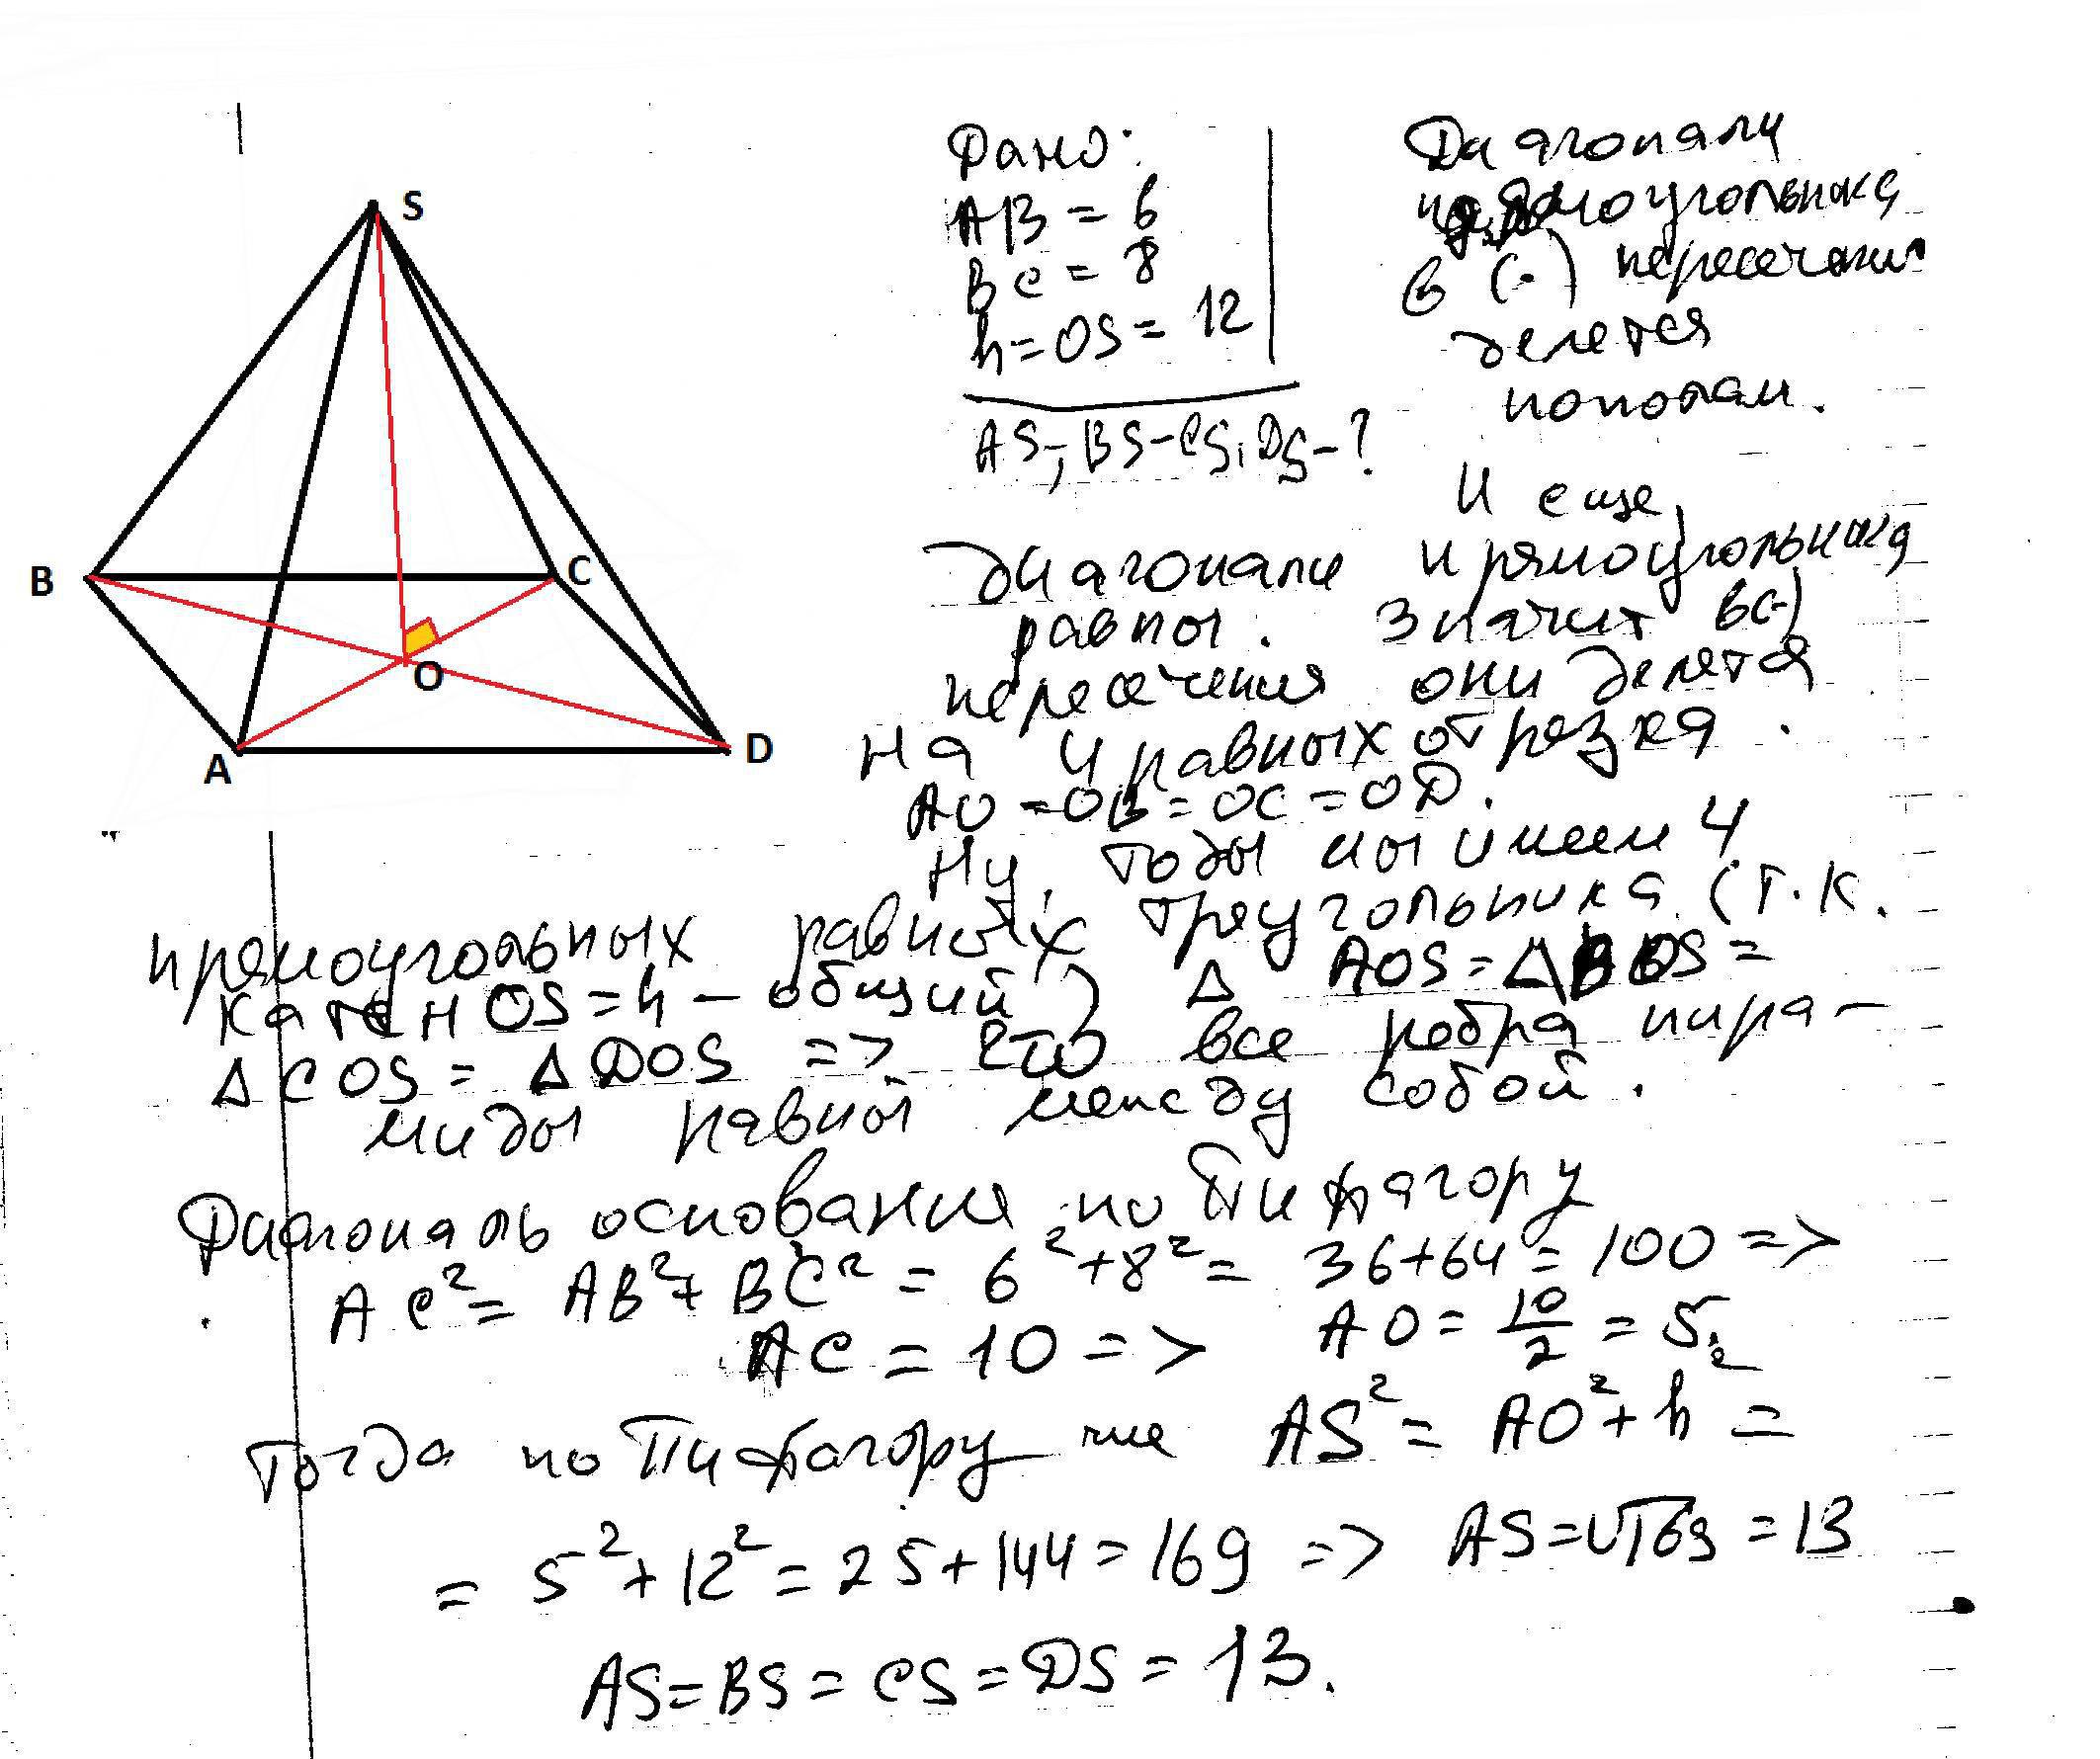 S
B
C
O
A
D
Дано:
AB = 6
BC = 8
h=OS = 12
AS; BS-CS; DS-?
Диагонали
прямоугольника
в (·) пересечения
делятся
пополам.
И еще,
диагонали прямоугольника
равны. Значит в(·)
пересечения они делятся
на 4 равных отрезка.
AO=OB=OC=OD.
Ну, тоды мы имеем 4
прямоугольных равных треугольника (т.к.
катет OS=h - общий) Δ AOS=ΔBOS=
ΔCOS= ΔDOS => что все ребра пира-
миды равны между собой.
Диагональ основания по Пифагору
AC²= AB²+BC² = 6²+8²= 36+64= 100 =>
AC = 10 => AO= 10/2 = 5.
Тогда по Пифагору же AS²= AO²+h²=
= 5²+12²=25+144=169 => AS=√169=13
AS=BS=CS=DS=13.